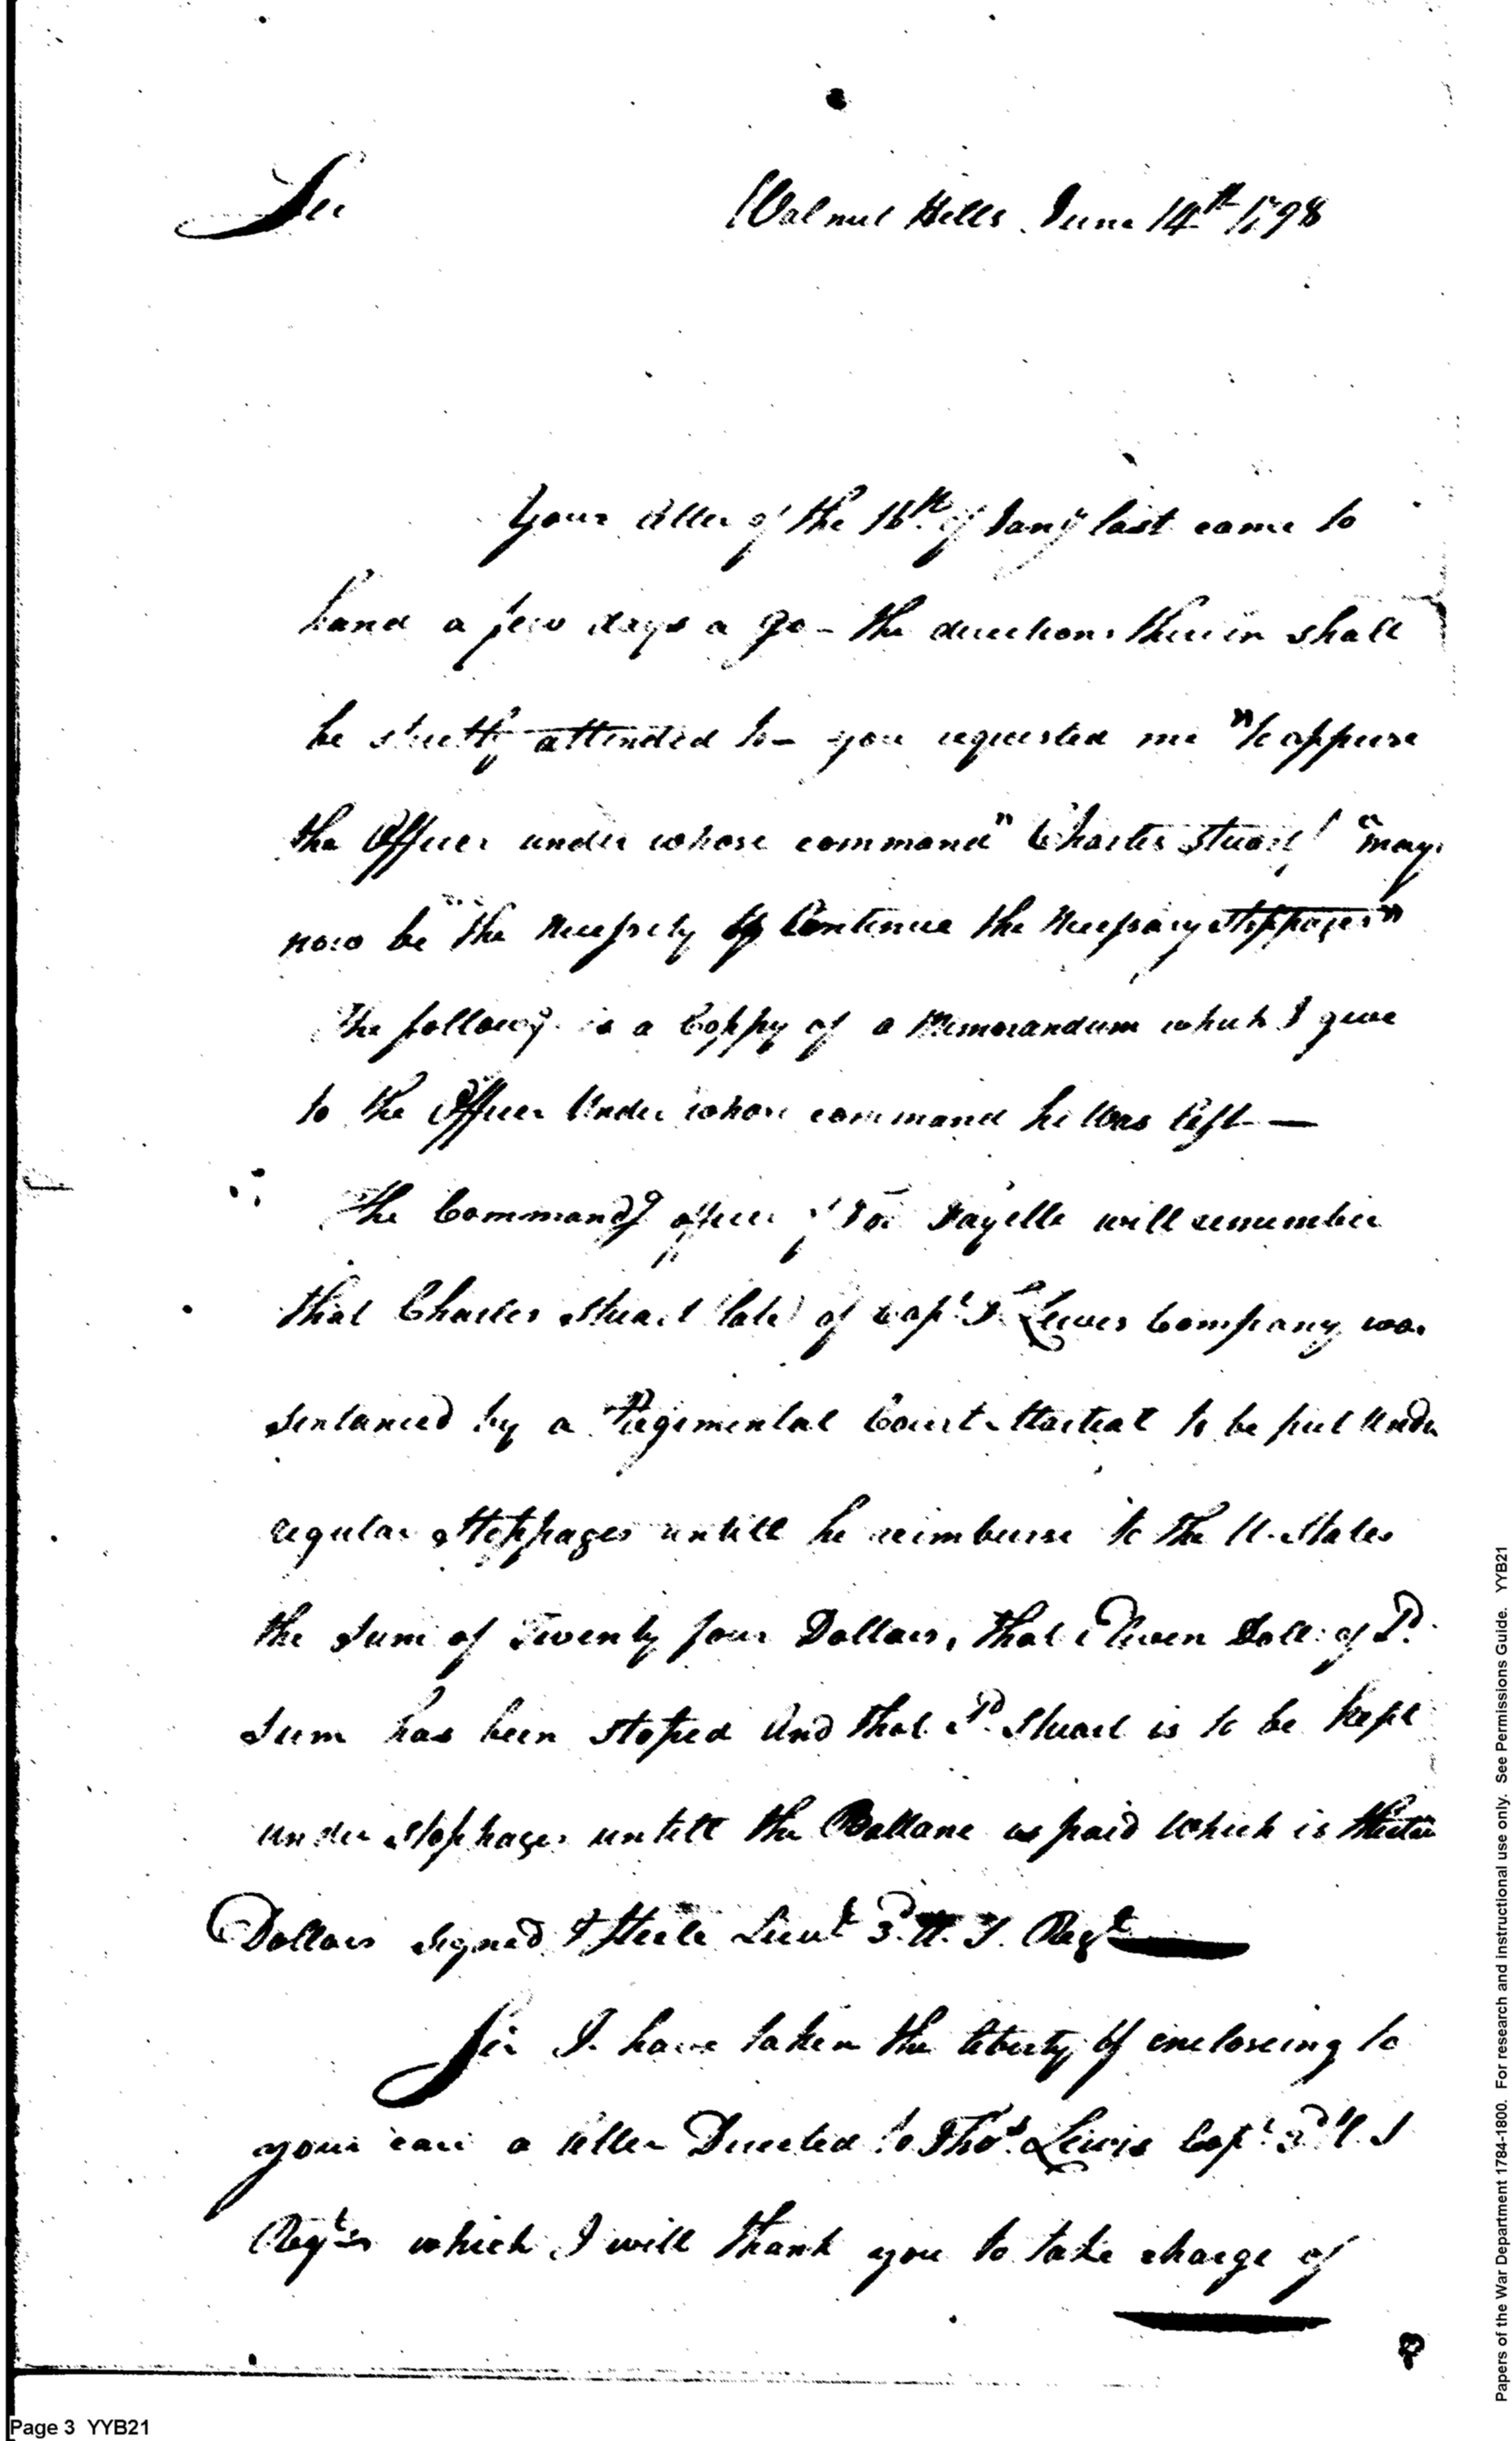 Sir
Walnut Hills June 14th 1798
Your letter of the 16th of Jany last came to
hand a few days a go - the directions therein shall
be strictly attended to - you requested me "to apprise
the Officer under whose command" Charles Stuart "may
now be the necessity of Continue the necessary stoppages"
The followg is a Coppy of a Memorandum which I gave
to the Officer Under whose command he Was left —
The Commandg officer of Fayette will remember
that Charles Stuart (late) of Capt T. Lewis Company was
sentanced by a Regimental Court Martial to be put Under
regular stoppages untill he reimburse to the U. States
the Sum of Twenty four Dollars, that Eleven Dolls of Sd
Sum has been stoped And that Sd Stuart is to be kept
under stoppages untill the Ballane is paid Which is thirteen
Dollars signed J Steele Lieut 3d U. S. Regt
Sir I have taken the liberty of encloseing to
your care a letter Directed to Thos Lewis Capt 3d U. S
Regt which I will thank you to take charge of
Page 3 YYB21
Papers of the War Department 1784-1800. For research and instructional use only. See Permissions Guide. YYB21